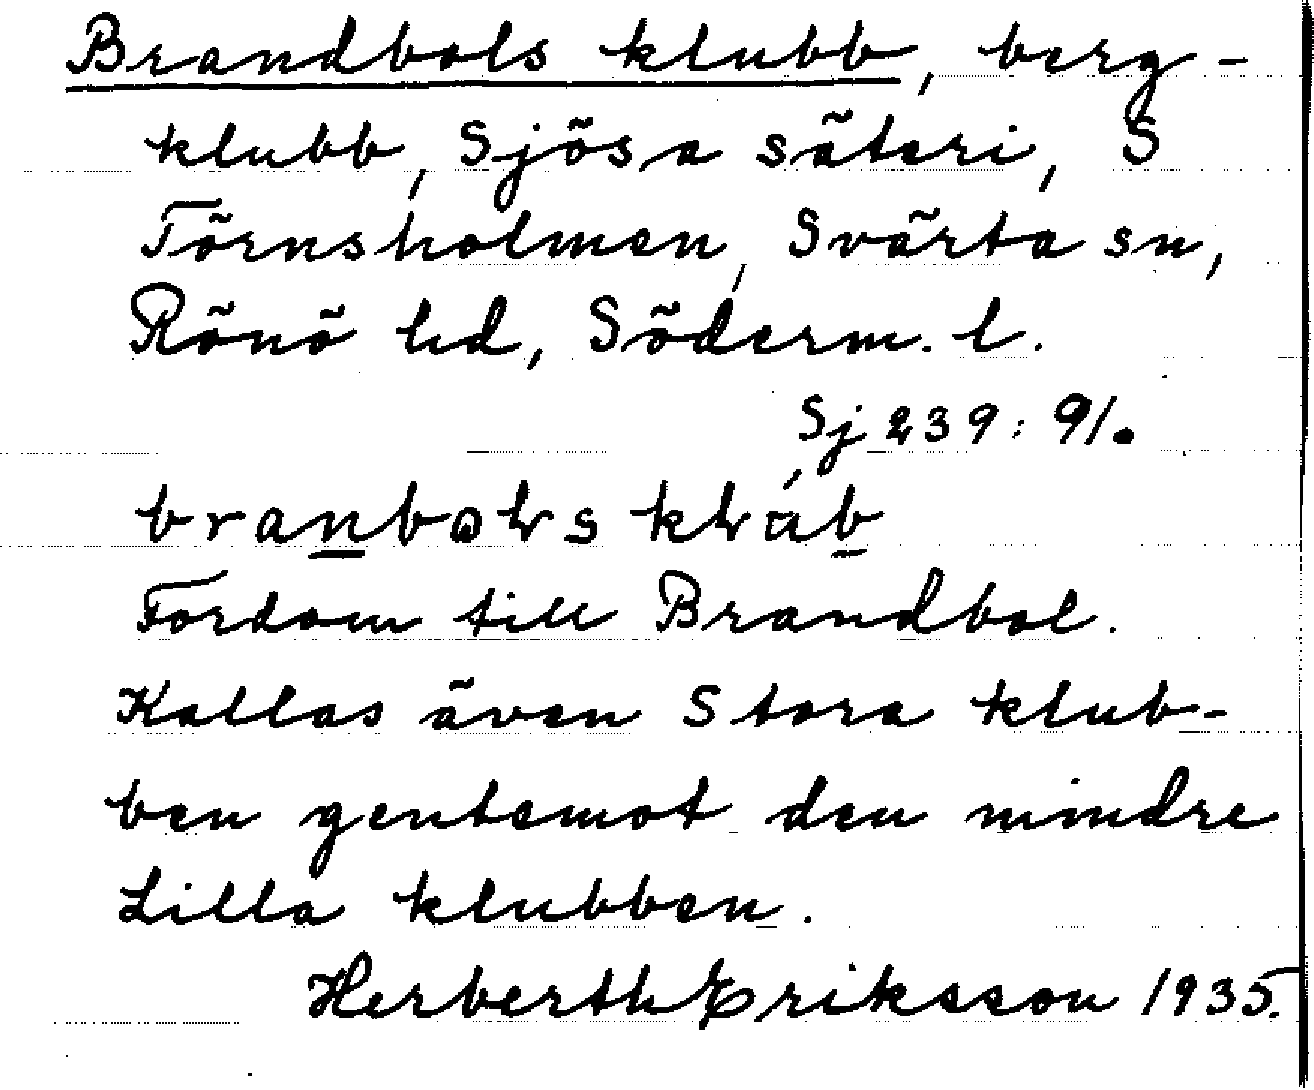 Brandbols klubb, berg-
klubb, Sjösa säteri, S
Törnsholmen, Svärta sn,
Rönö hd, Söderm. l.
Sj 239: 91.
Fordom till Brandbol.
Kallas även Stora klub-
ben gentemot den mindre
Lilla klubben.
Herberth Eriksson 1935.